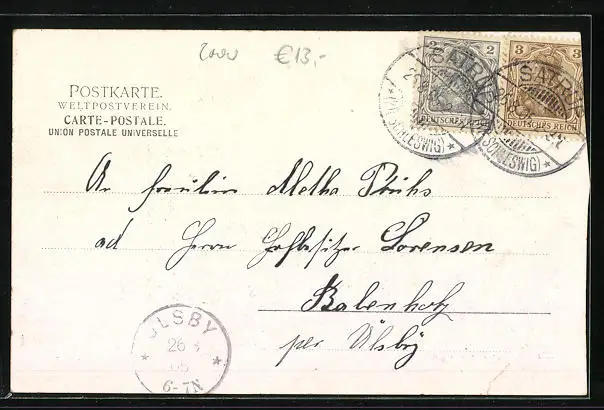 2000 €13,-
2 2 3 3
SATRUP SATRUP
DEUTSCHES REICH DEUTSCHES REICH
(SCHLESWIG) (SCHLESWIG)
POSTKARTE.
WELTPOSTVEREIN.
CARTE-POSTALE.
UNION POSTALE UNIVERSELLE
An Fräulein Metha
ad Herrn Hofbesitzer Lorensen
Balenholz
per Ülsby
ÜLSBY
26
6-7N